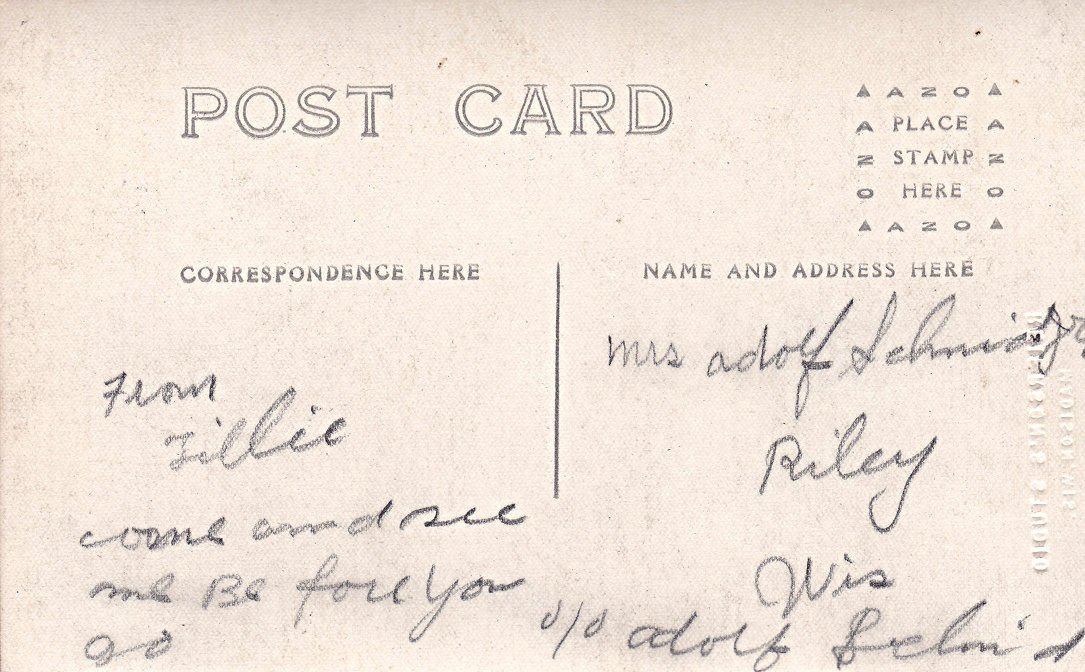 POST CARD
▲ A Z O ▲
A PLACE A
Z STAMP Z
O HERE O
▲ A Z O ▲
CORRESPONDENCE HERE
NAME AND ADDRESS HERE
Mrs adolf
From
Tillie
Riley
come and see
me Be fore You
go
Wis
c/o adolf
MADISON, WIS.
STUDIO